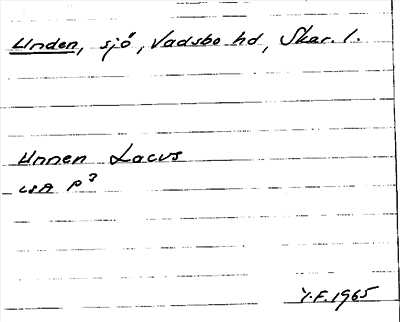 Unden, sjö, Vadsbo hd, Skar. l.
Unnen Lacus
LSA P3
Y.F. 1965